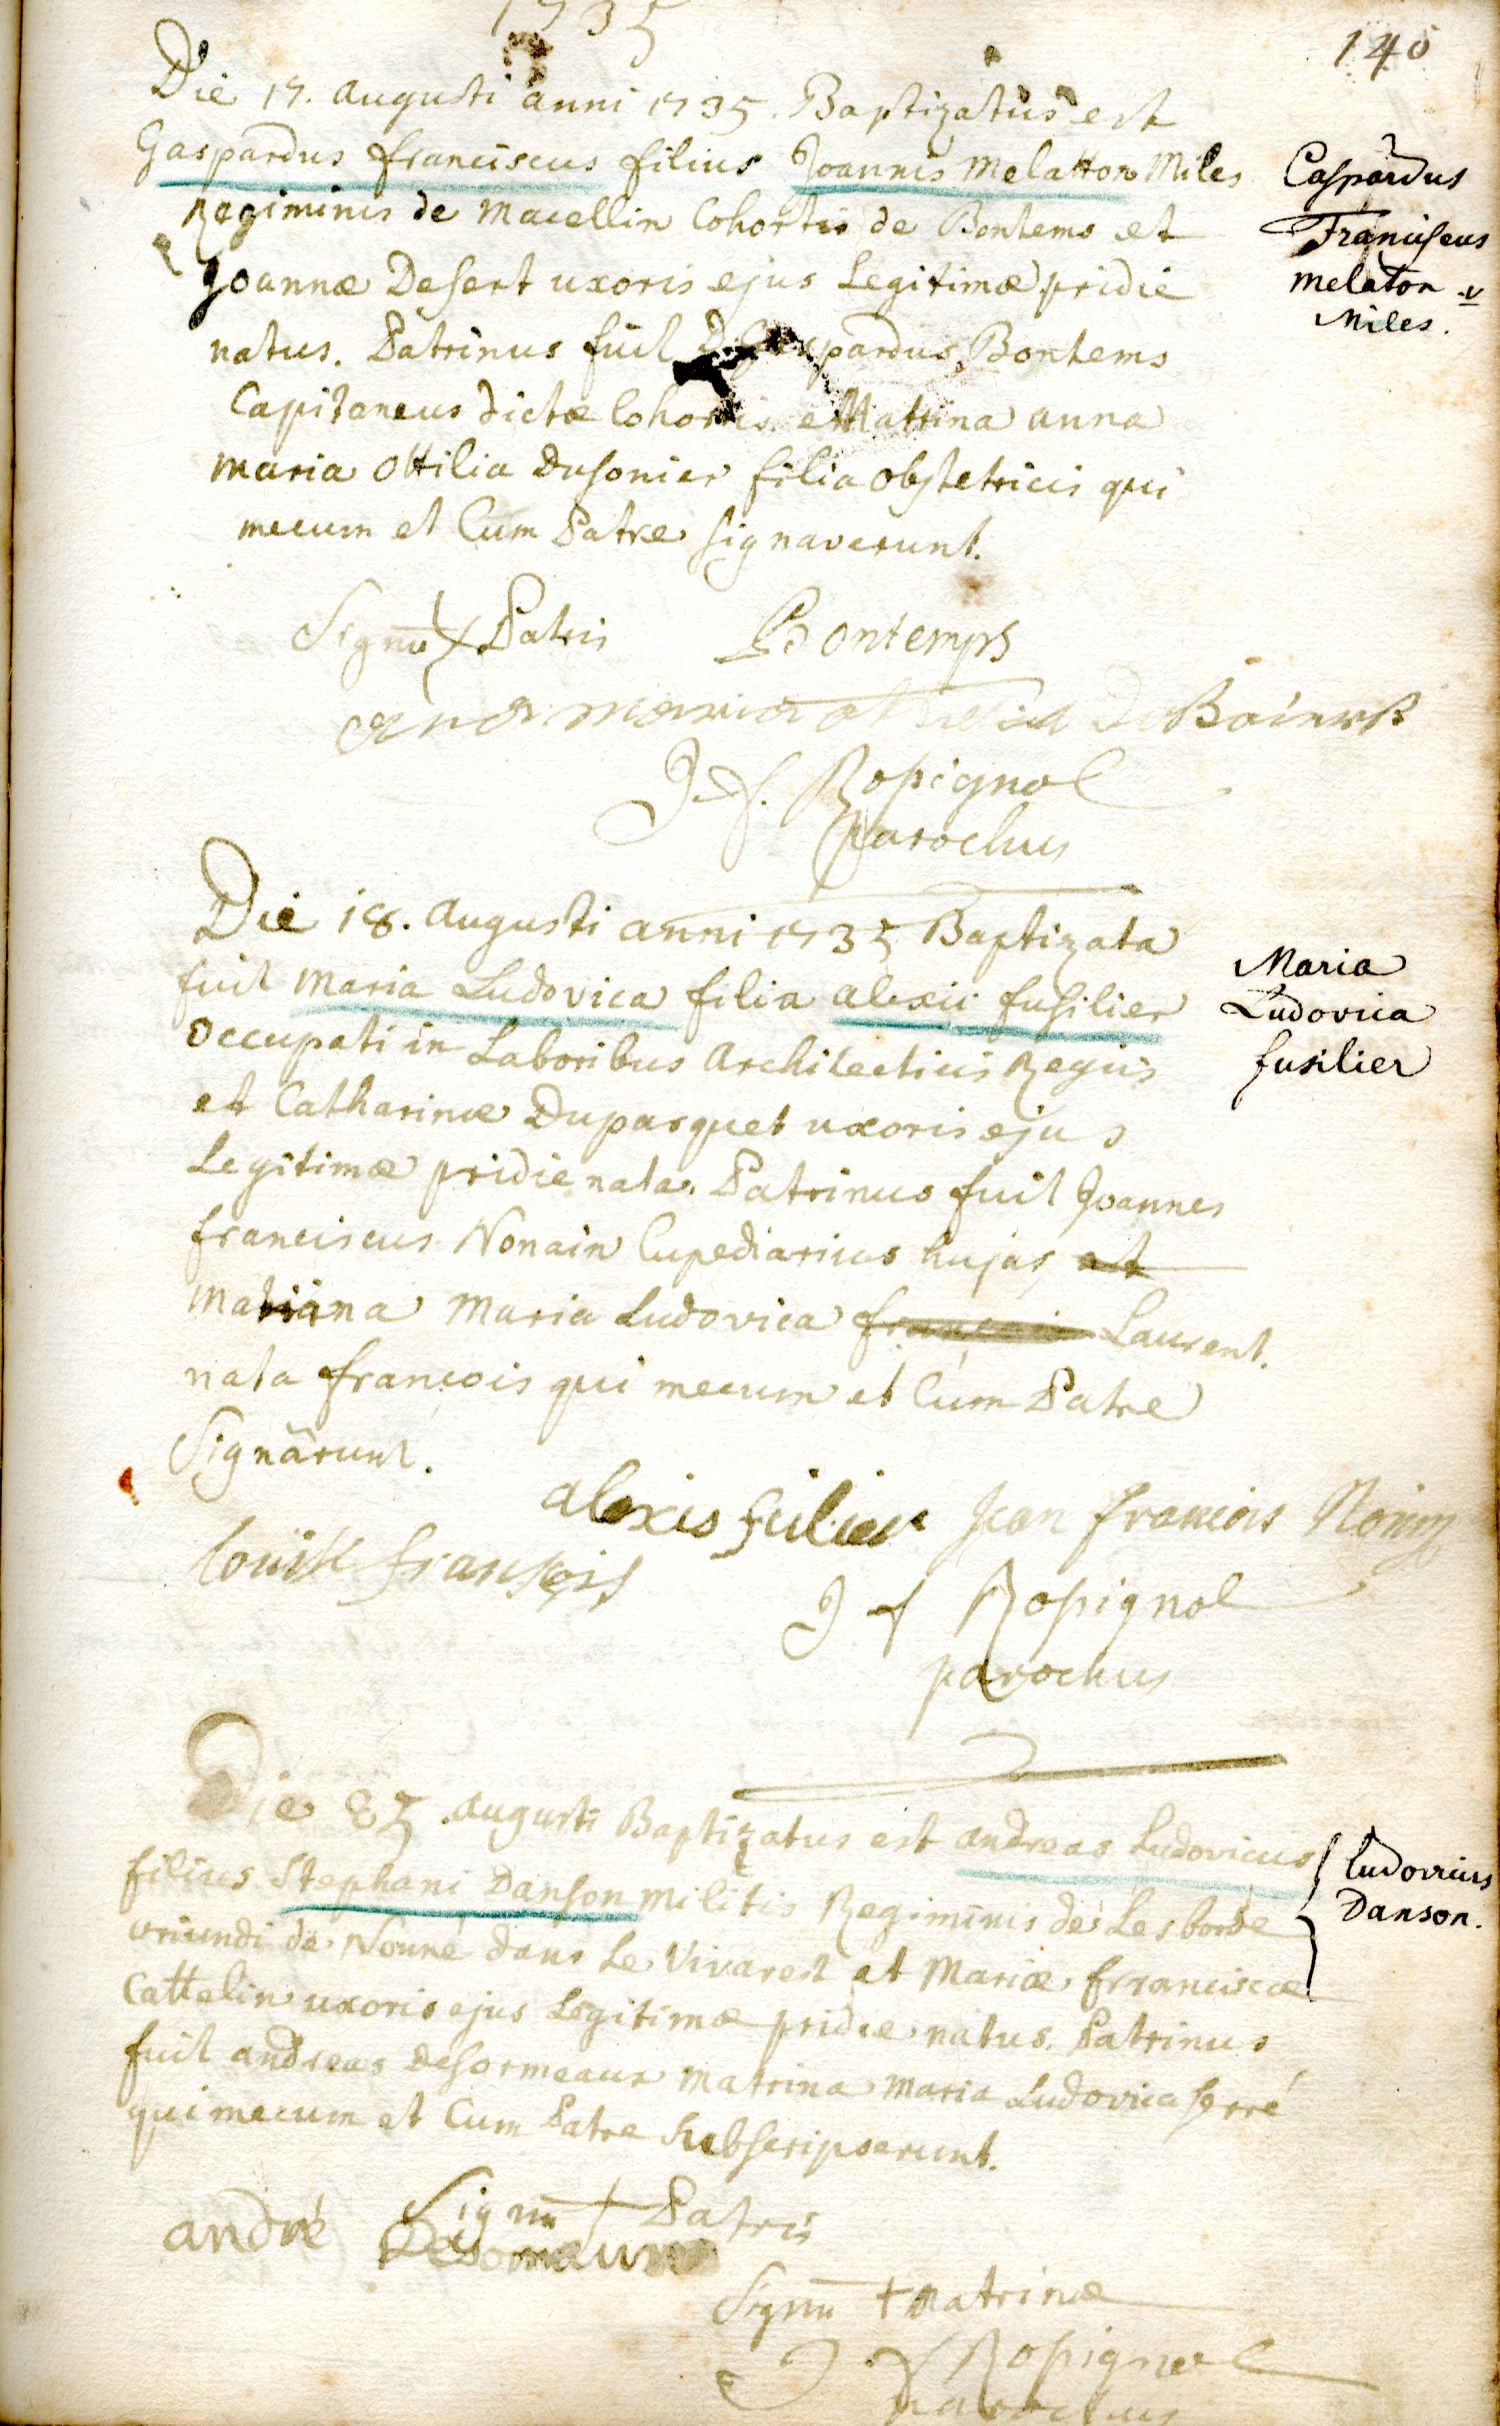 1735
140
Die 17. Augusti anni 1735. Baptizatus est
Gaspardus franciscus filius Joannis Melatton Miles
Regiminis de Macellin Cohortis de Bontems et
Joannæ Desert uxoris ejus Legitimæ pridie
natus. Patrinus fuit D. Gaspardus Bontems
Capitaneus dictæ Cohortis et Matrina anna
maria Ottilia Dusonier filia obstetricis qui
mecum et Cum Patre signaverunt.
Caspardus
Franciscus
melaton
Miles.
Signū Patris Bontemps
ana maria
J. f. Ropignol
parochus
Die 18. Augusti anni 1735 Baptizata
fuit Maria Ludovica filia alexii fusilier
occupati in Laboribus Architecticis Regiis
et Catharinæ Duparquet uxoris ejus
Legitimæ pridie nata. Patrinus fuit Joannes
franciscus Nonain Cupediarius hujas et
Matrina Maria Ludovica françois Laurent.
nata françois qui mecum et Cum Patre
Signârunt.
Maria
Ludovica
fusilier
alexis fuilier Jean francois
fransois
J f Ropignol
parochus
Die 25 Augusti Baptizatus est andreas Ludovicus
filius Stephani Danson militis Regiminis de Lesborde
oriundi de Nonné dans Le Vivarest et Mariæ franciscæ
Cattelin uxoris ejus Legitimæ pridie natus. Patrinus
fuit andreas Desormeaux matrina maria Ludovica serré
qui mecum et Cum Patre Subscripserunt.
Ludovicus
Danson.
Signū + Patris
andré
Signū + Matrinæ
J f Ropignol
parochus